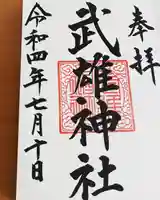 奉拝
武雄神社
令和四年七月十日